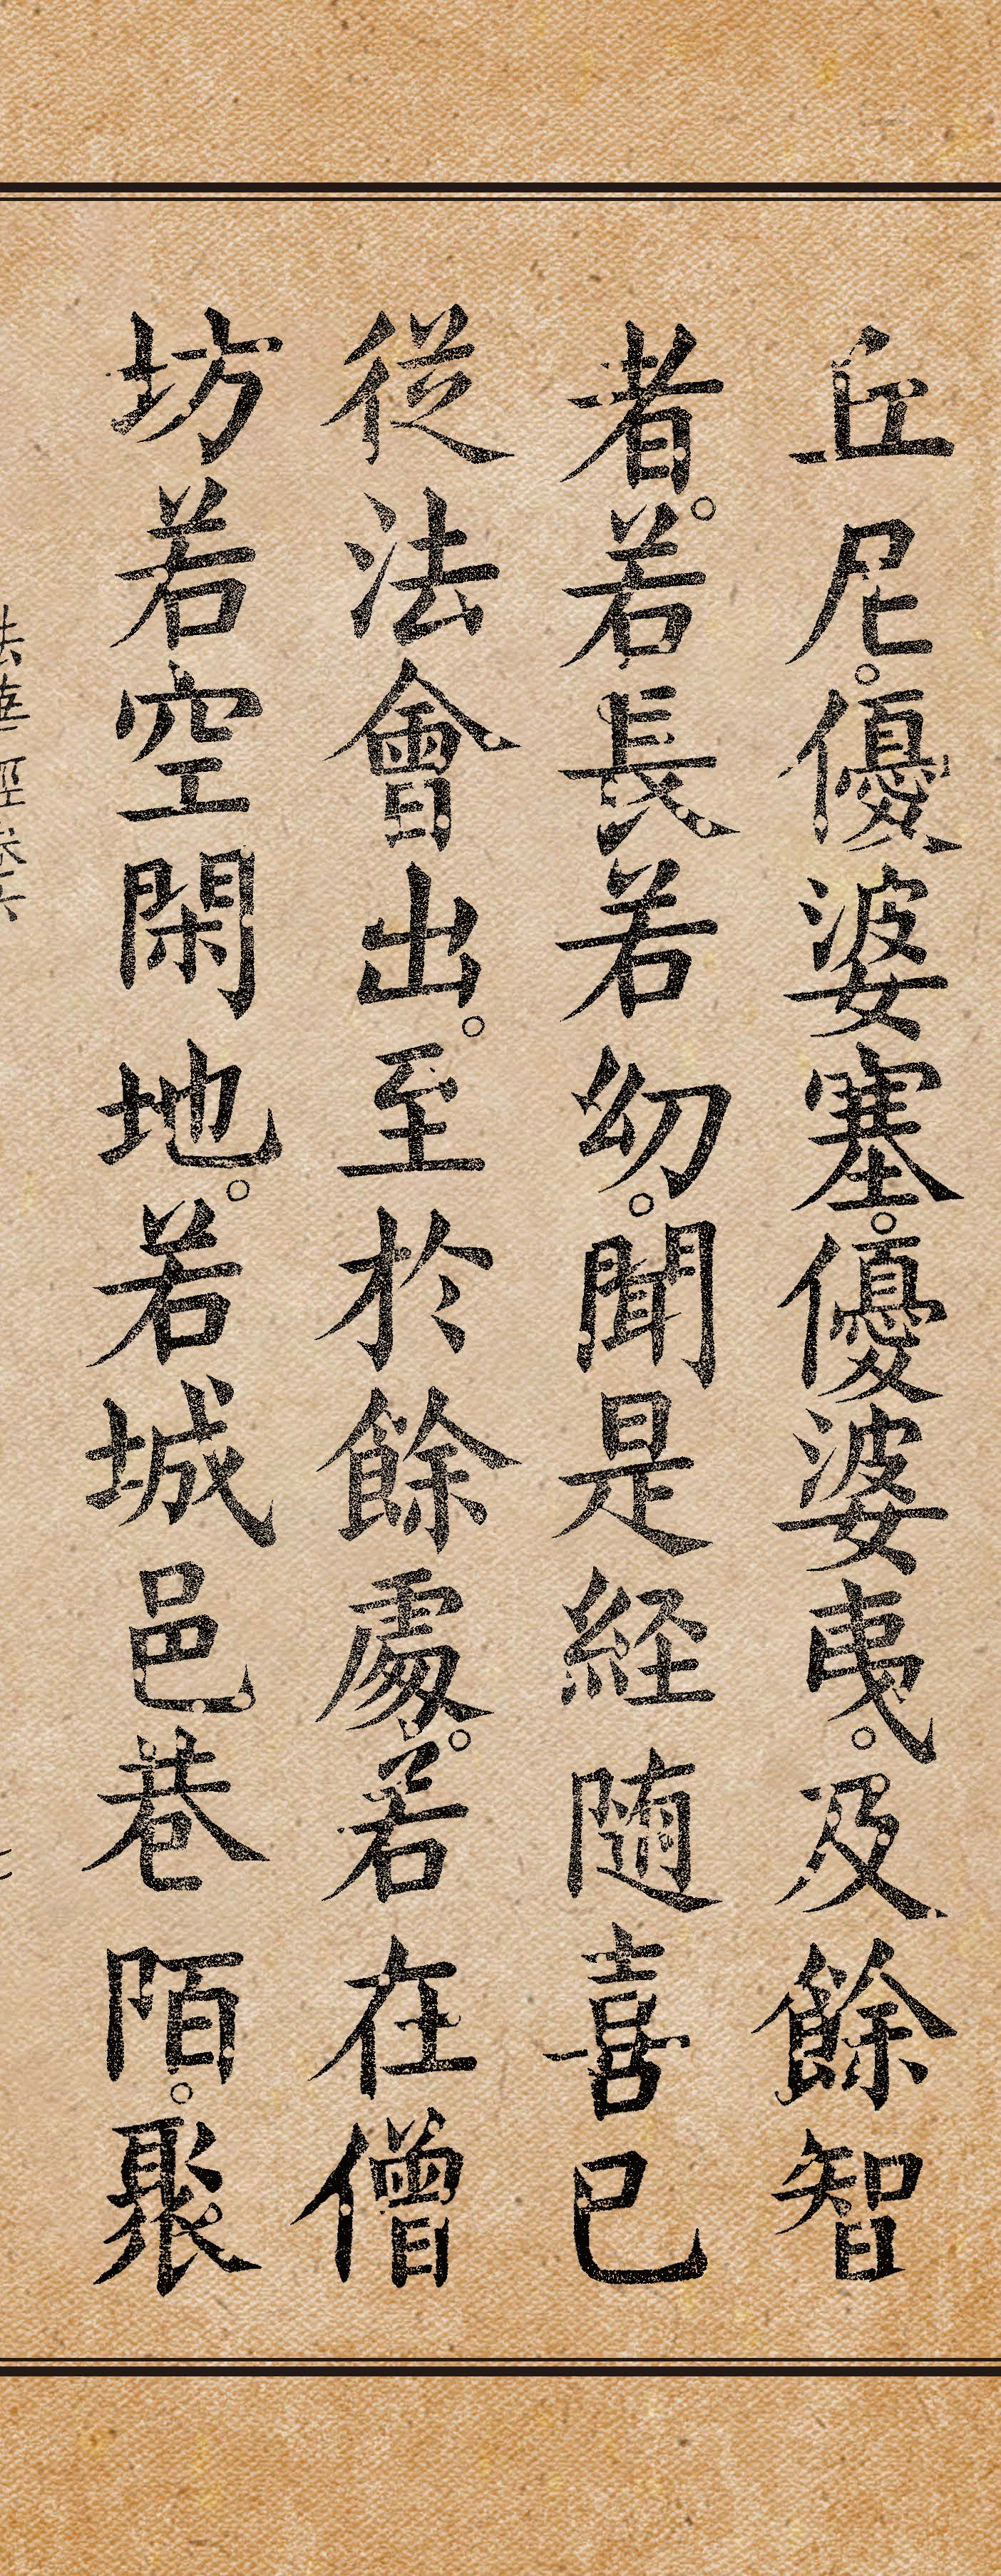 丘尼。優婆塞。優婆夷。及餘智
者。若長若幼。聞是経随喜已
從法會出。至於餘處。若在僧
坊若空閑地。若城邑巷陌。聚
法華經卷六